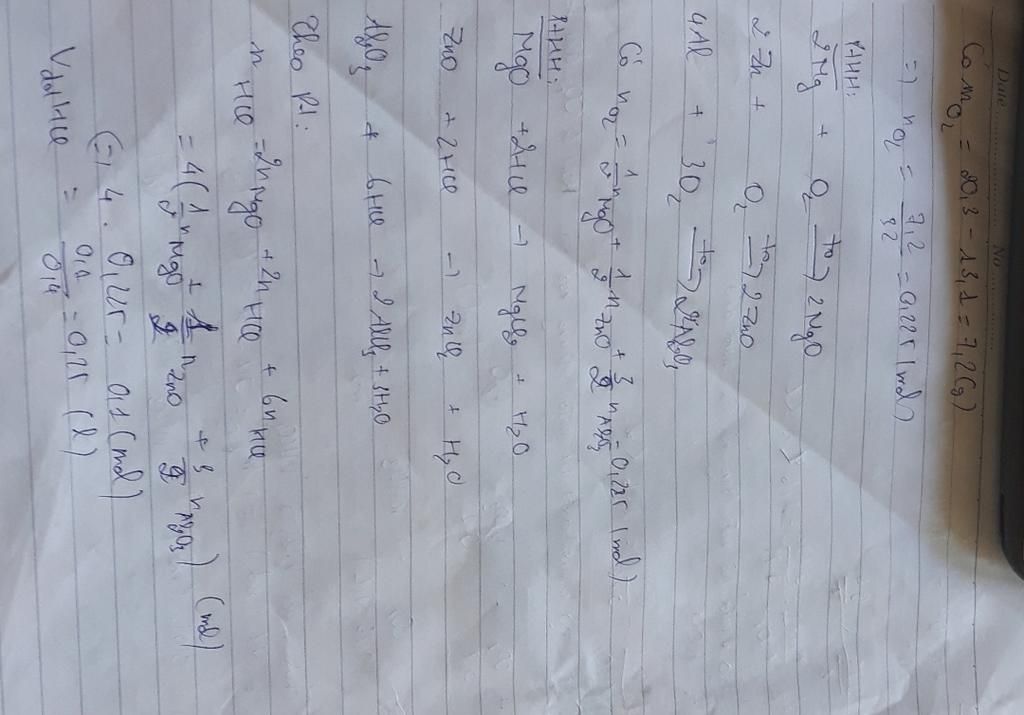 Date No
Có mO2 = 20,3 - 13,1 = 7,2(g)
=) nO2 = 7,2/32 = 0,225 (mol)
PTHH:
2Mg + O2 -to-> 2MgO
2Zn + O2 -to-> 2ZnO
4Al + 3O2 -to-> 2Al2O3
Có nO2 = 1/2 nMgO + 1/2 nZnO + 3/2 nAl2O3 = 0,225 (mol)
PTHH:
MgO + 2HCl -> MgCl2 + H2O
ZnO + 2HCl -> ZnCl2 + H2O
Al2O3 + 6HCl -> 2AlCl3 + 3H2O
Theo Pt:
nHCl = 2nMgO + 2nHCl + 6nHCl
= 4(1/2 nMgO + 1/2 nZnO + 3/2 nAl2O3) (mol)
(=) 4 . 0,225 = 0,1 (mol)
Vdd HCl = 0,1/0,4 = 0,25 (l)